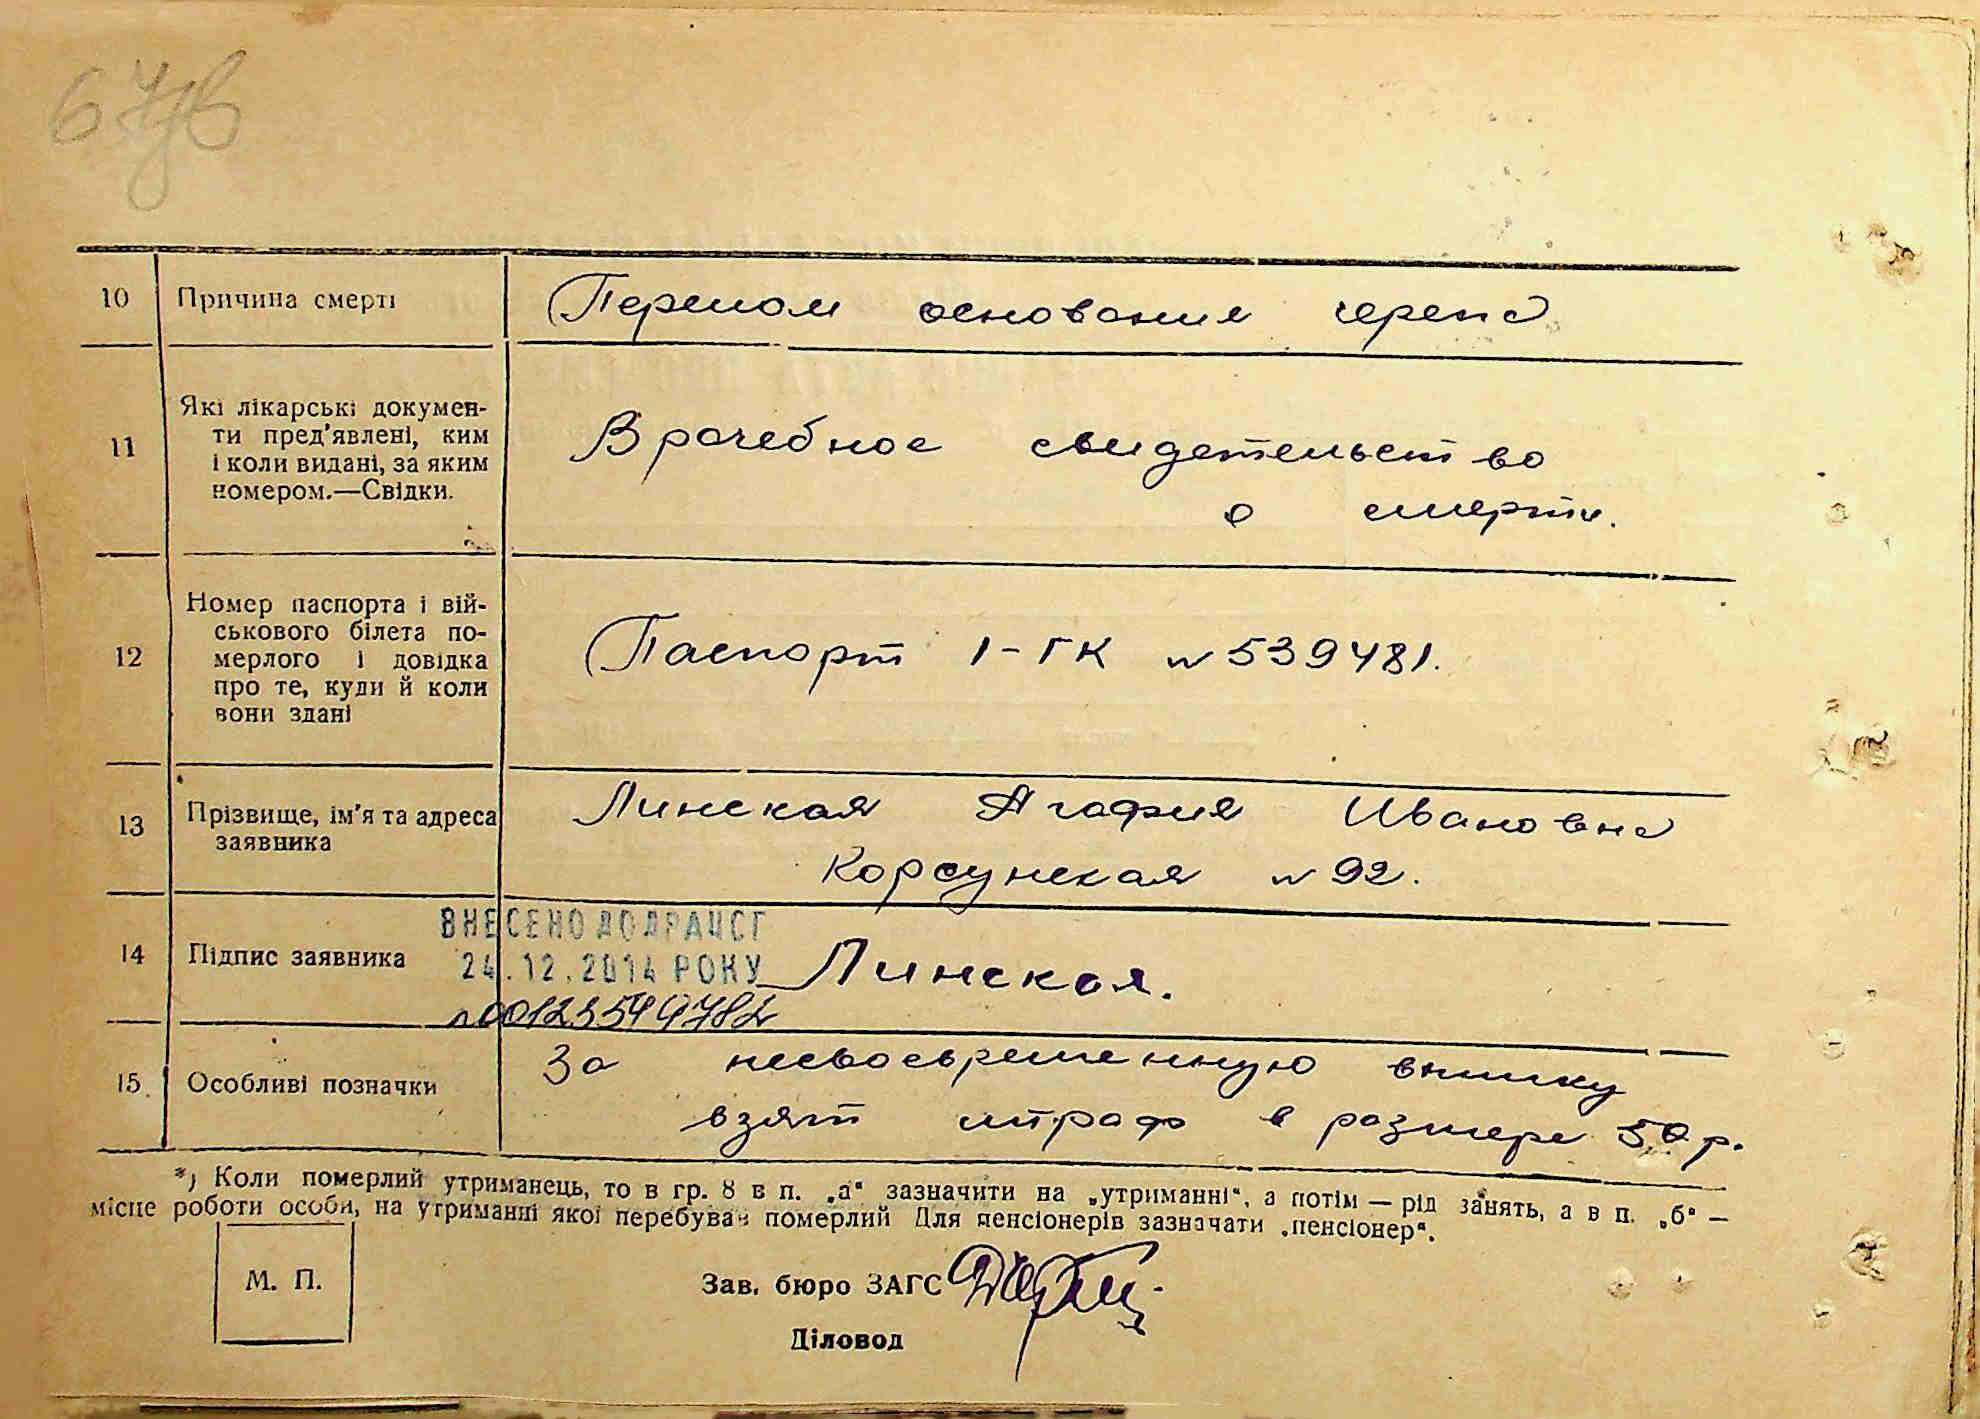 67зв
10 Причина смерті Перелом основания черепа
11 Які лікарські докумен-
ти пред'явлені, ким
і коли видані, за яким
номером.—Свідки.
Врачебное свидетельство
о смерти.
12 Номер паспорта і вій-
ськового білета по-
мерлого і довідка
про те, куди й коли
вони здані
Паспорт 1-ГК № 539481.
13 Прізвище, ім'я та адреса
заявника
Линская Агафия Ивановна
Корсунская № 92.
14 Підпис заявника Линская.
ВНЕСЕНО ДО ДРАЦСГ
24.12.2014 РОКУ
15. Особливі позначки За несвоевременную
взят штраф в размере 50 р.
*) Коли померлий утриманець, то в гр. 8 в п. „а“ зазначити на „утриманні“, а потім — рід занять, а в п. „б“ —
місце роботи особи, на утриманні якої перебував померлий Для пенсіонерів зазначати „пенсіонер“.
М. П.
Зав. бюро ЗАГС
Діловод